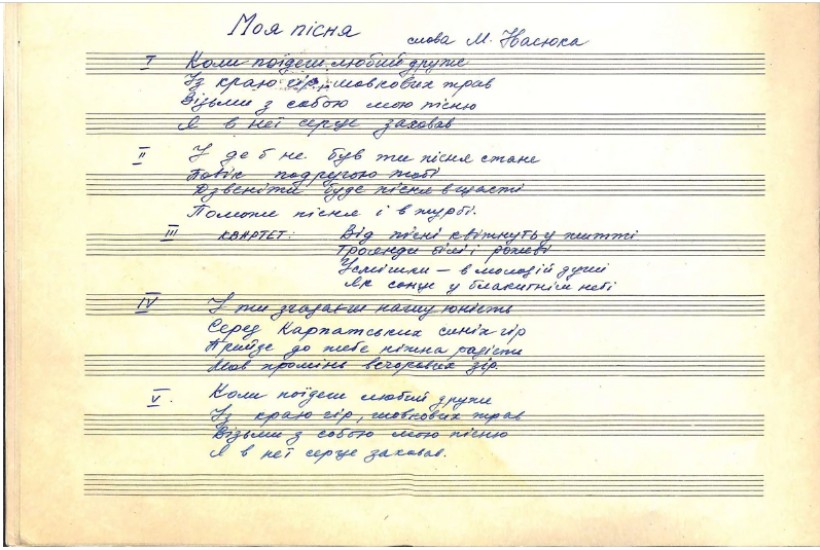 Моя пісня
слова М. Івасюка
I Коли поїдеш любий друже
Із краю гір, шовкових трав
Візьми з собою мою пісню
Я в неї серце заховав
II І де б не був ти пісня стане
Навік подругою тобі
Дзвеніти буде пісня в щасті
Поможе пісня і в журбі.
III КВАРТЕТ: Від пісні квітнуть у житті
Троянди білі і рожеві
Усмішки – в молодій душі
Як сонце у блакитнім небі
IV І ти згадаєш нашу юність
Серед Карпатських синіх гір
Прийде до тебе ніжна радість
Мов промінь вечорових зір.
V. Коли поїдеш любий друже
Із краю гір, шовкових трав
Візьми з собою мою пісню
Я в неї серце заховав.